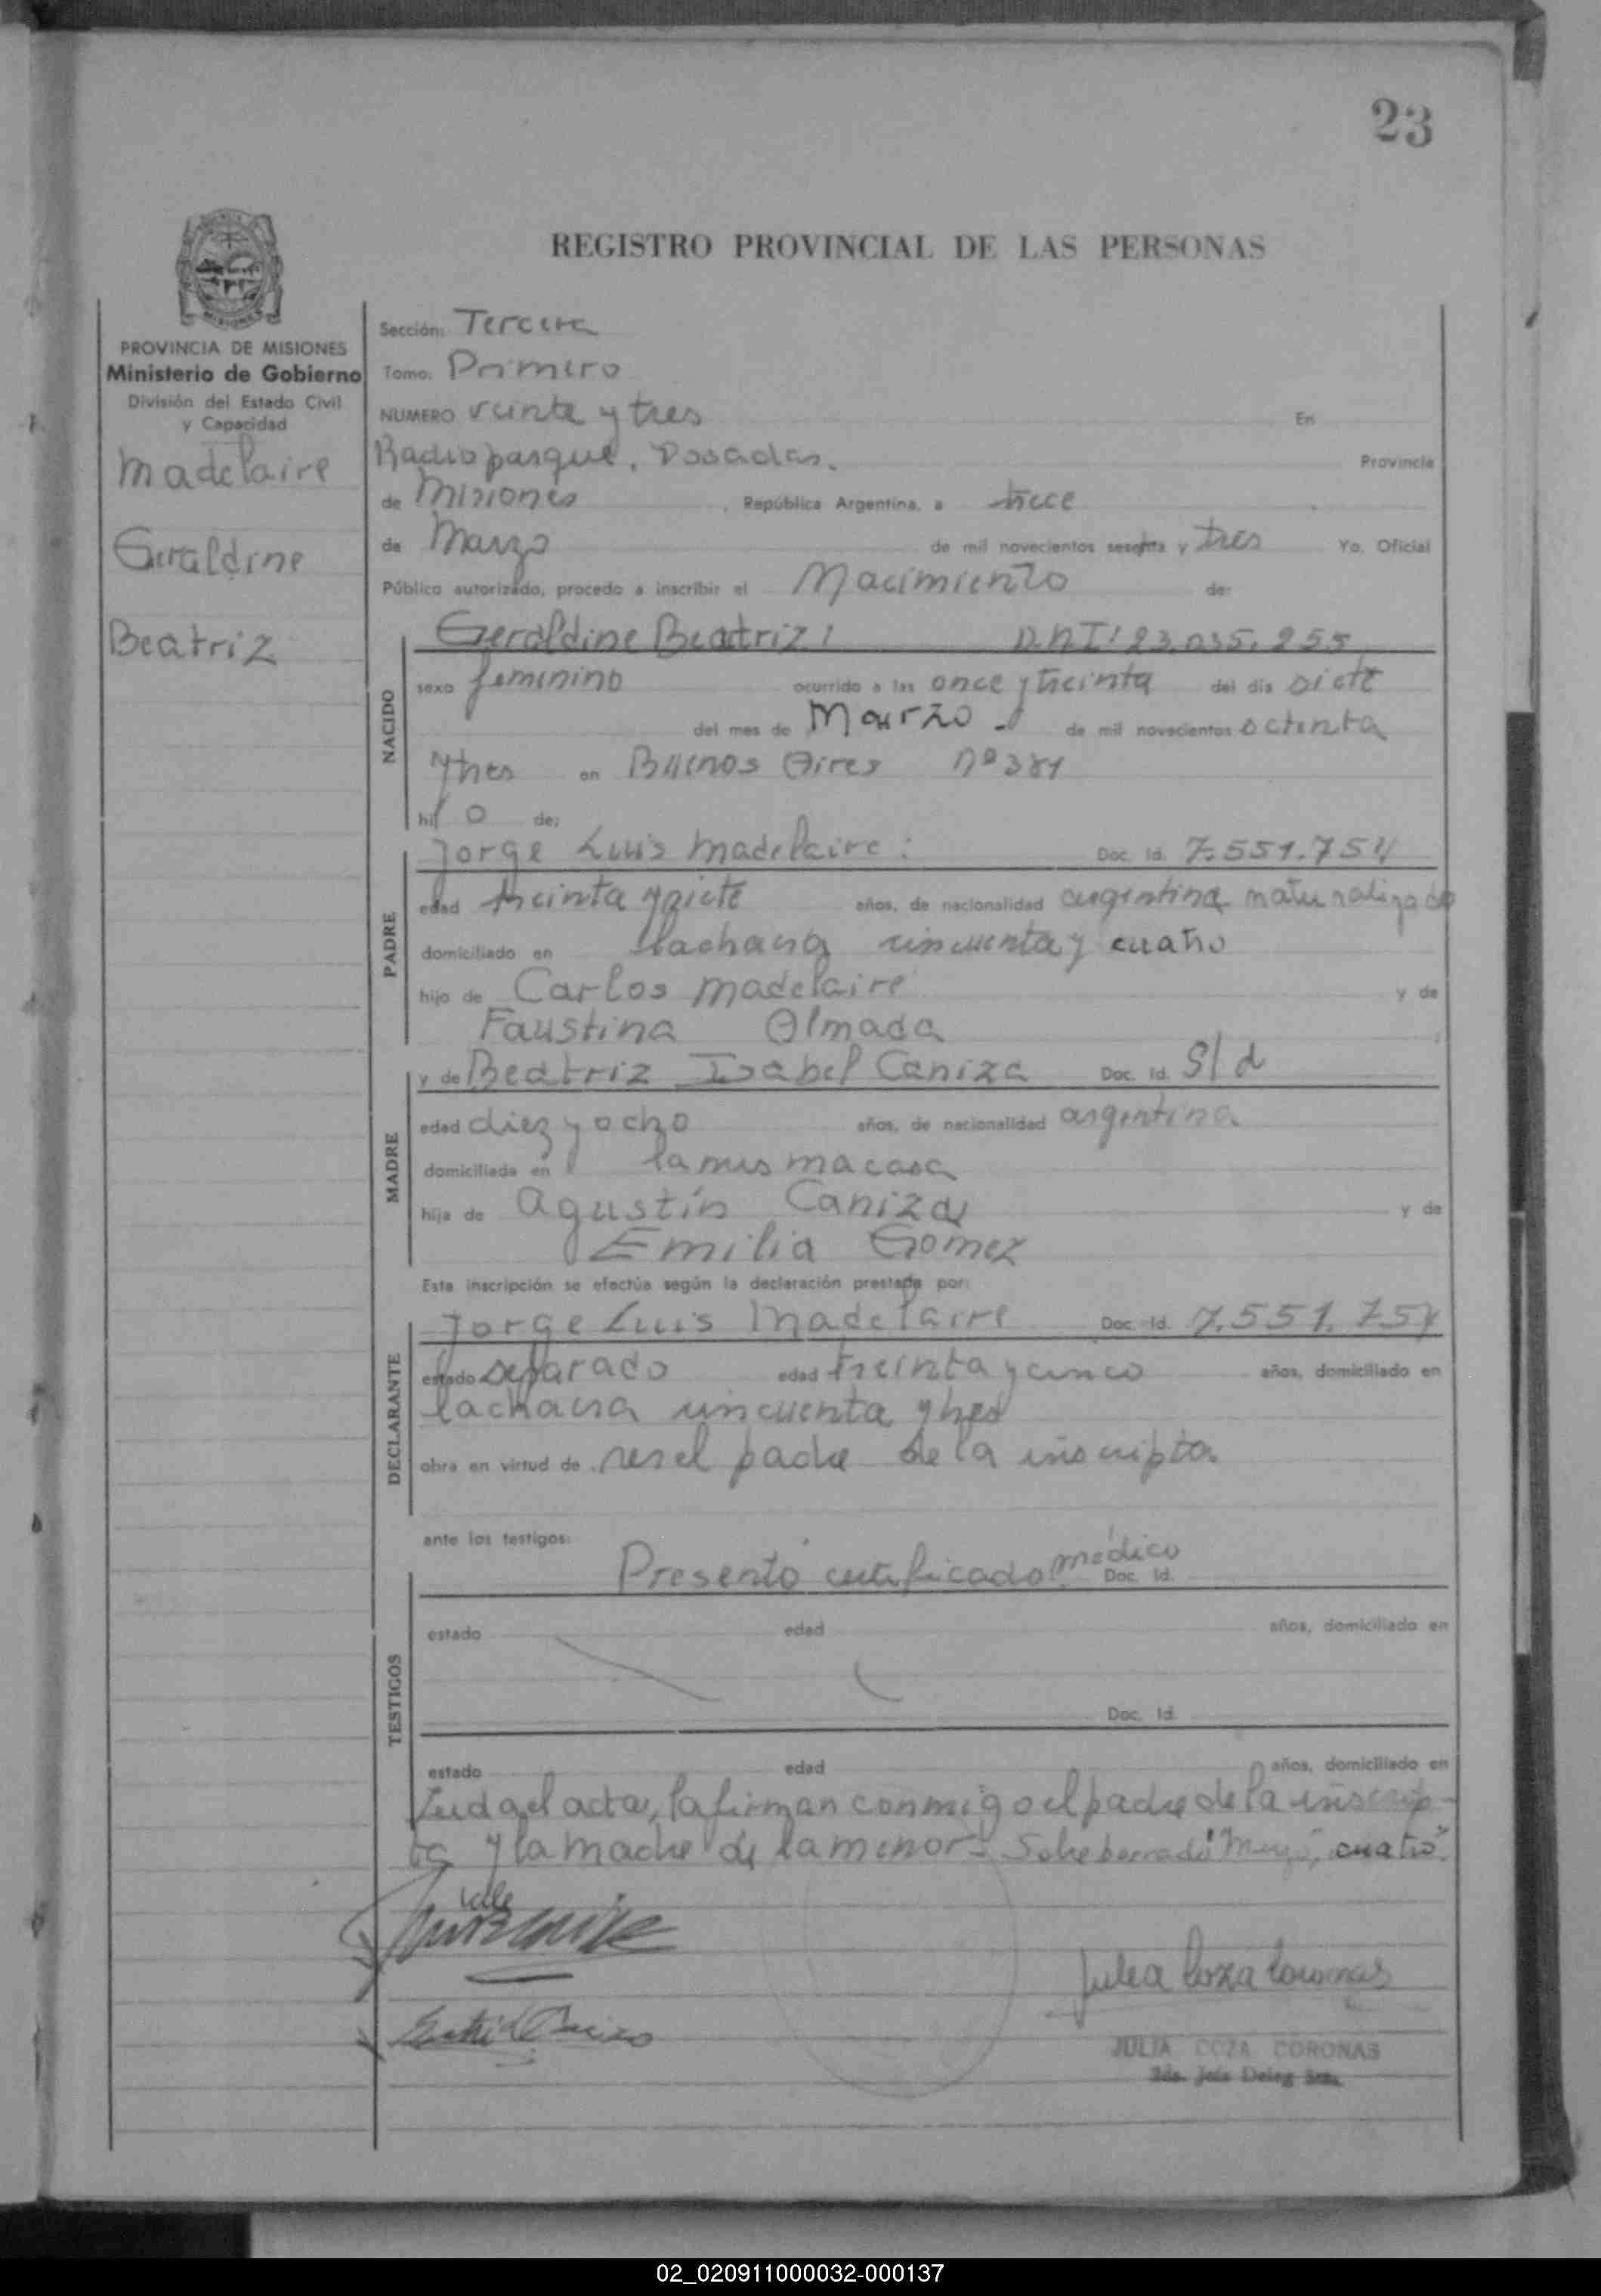 23
REGISTRO PROVINCIAL DE LAS PERSONAS
PROVINCIA DE MISIONES
Ministerio de Gobierno
División del Estado Civil
y Capacidad
Madelaire
Geraldine
Beatriz
Sección: Tercera
Tomo: Primero
NUMERO veinte y tres En
Radio parque, Posadas. Provincia
de Misiones, República Argentina, a trece
de Marzo de mil novecientos sesenta y tres Yo, Oficial
Público autorizado, procedo a inscribir el Nacimiento de:
NACIDO
Geraldine Beatriz: D.N.I: 23.035.255
sexo femenino ocurrido a las once y treinta del día siete
del mes de Marzo de mil novecientos octenta
y tres en Buenos Aires Nº 381
hij o de:
PADRE
Jorge Luis Madelaire: Doc. Id. 7.551.754
edad treinta y siete años, de nacionalidad argentina naturalizado
domiciliado en la chacra cincuenta y cuatro
hijo de Carlos Madelaire y de
Faustina Olmada
MADRE
y de Beatriz Isabel Caniza Doc. Id. S/d
edad diez y ocho años, de nacionalidad argentina
domiciliada en la misma casa
hija de Agustín Caniza y de
Emilia Gomez
Esta inscripción se efectúa según la declaración prestada por:
DECLARANTE
Jorge Luis Madelaire Doc. Id. 7.551.754
estado separado edad treinta y cinco años, domiciliado en
la chacra cincuenta y tres
obra en virtud de ser el padre de la inscripta
ante los testigos:
TESTIGOS
Presentó certificado médico Doc. Id.
estado edad años, domiciliado en
Doc. Id.
estado edad años, domiciliado en
Leida el acta, la firman conmigo el padre de la inscrip-
ta y la madre de la menor - Sobre borrado "Marzo", cuatro"
Vale
Julia Coza Coronas
JULIA COZA CORONAS
02_020911000032-000137